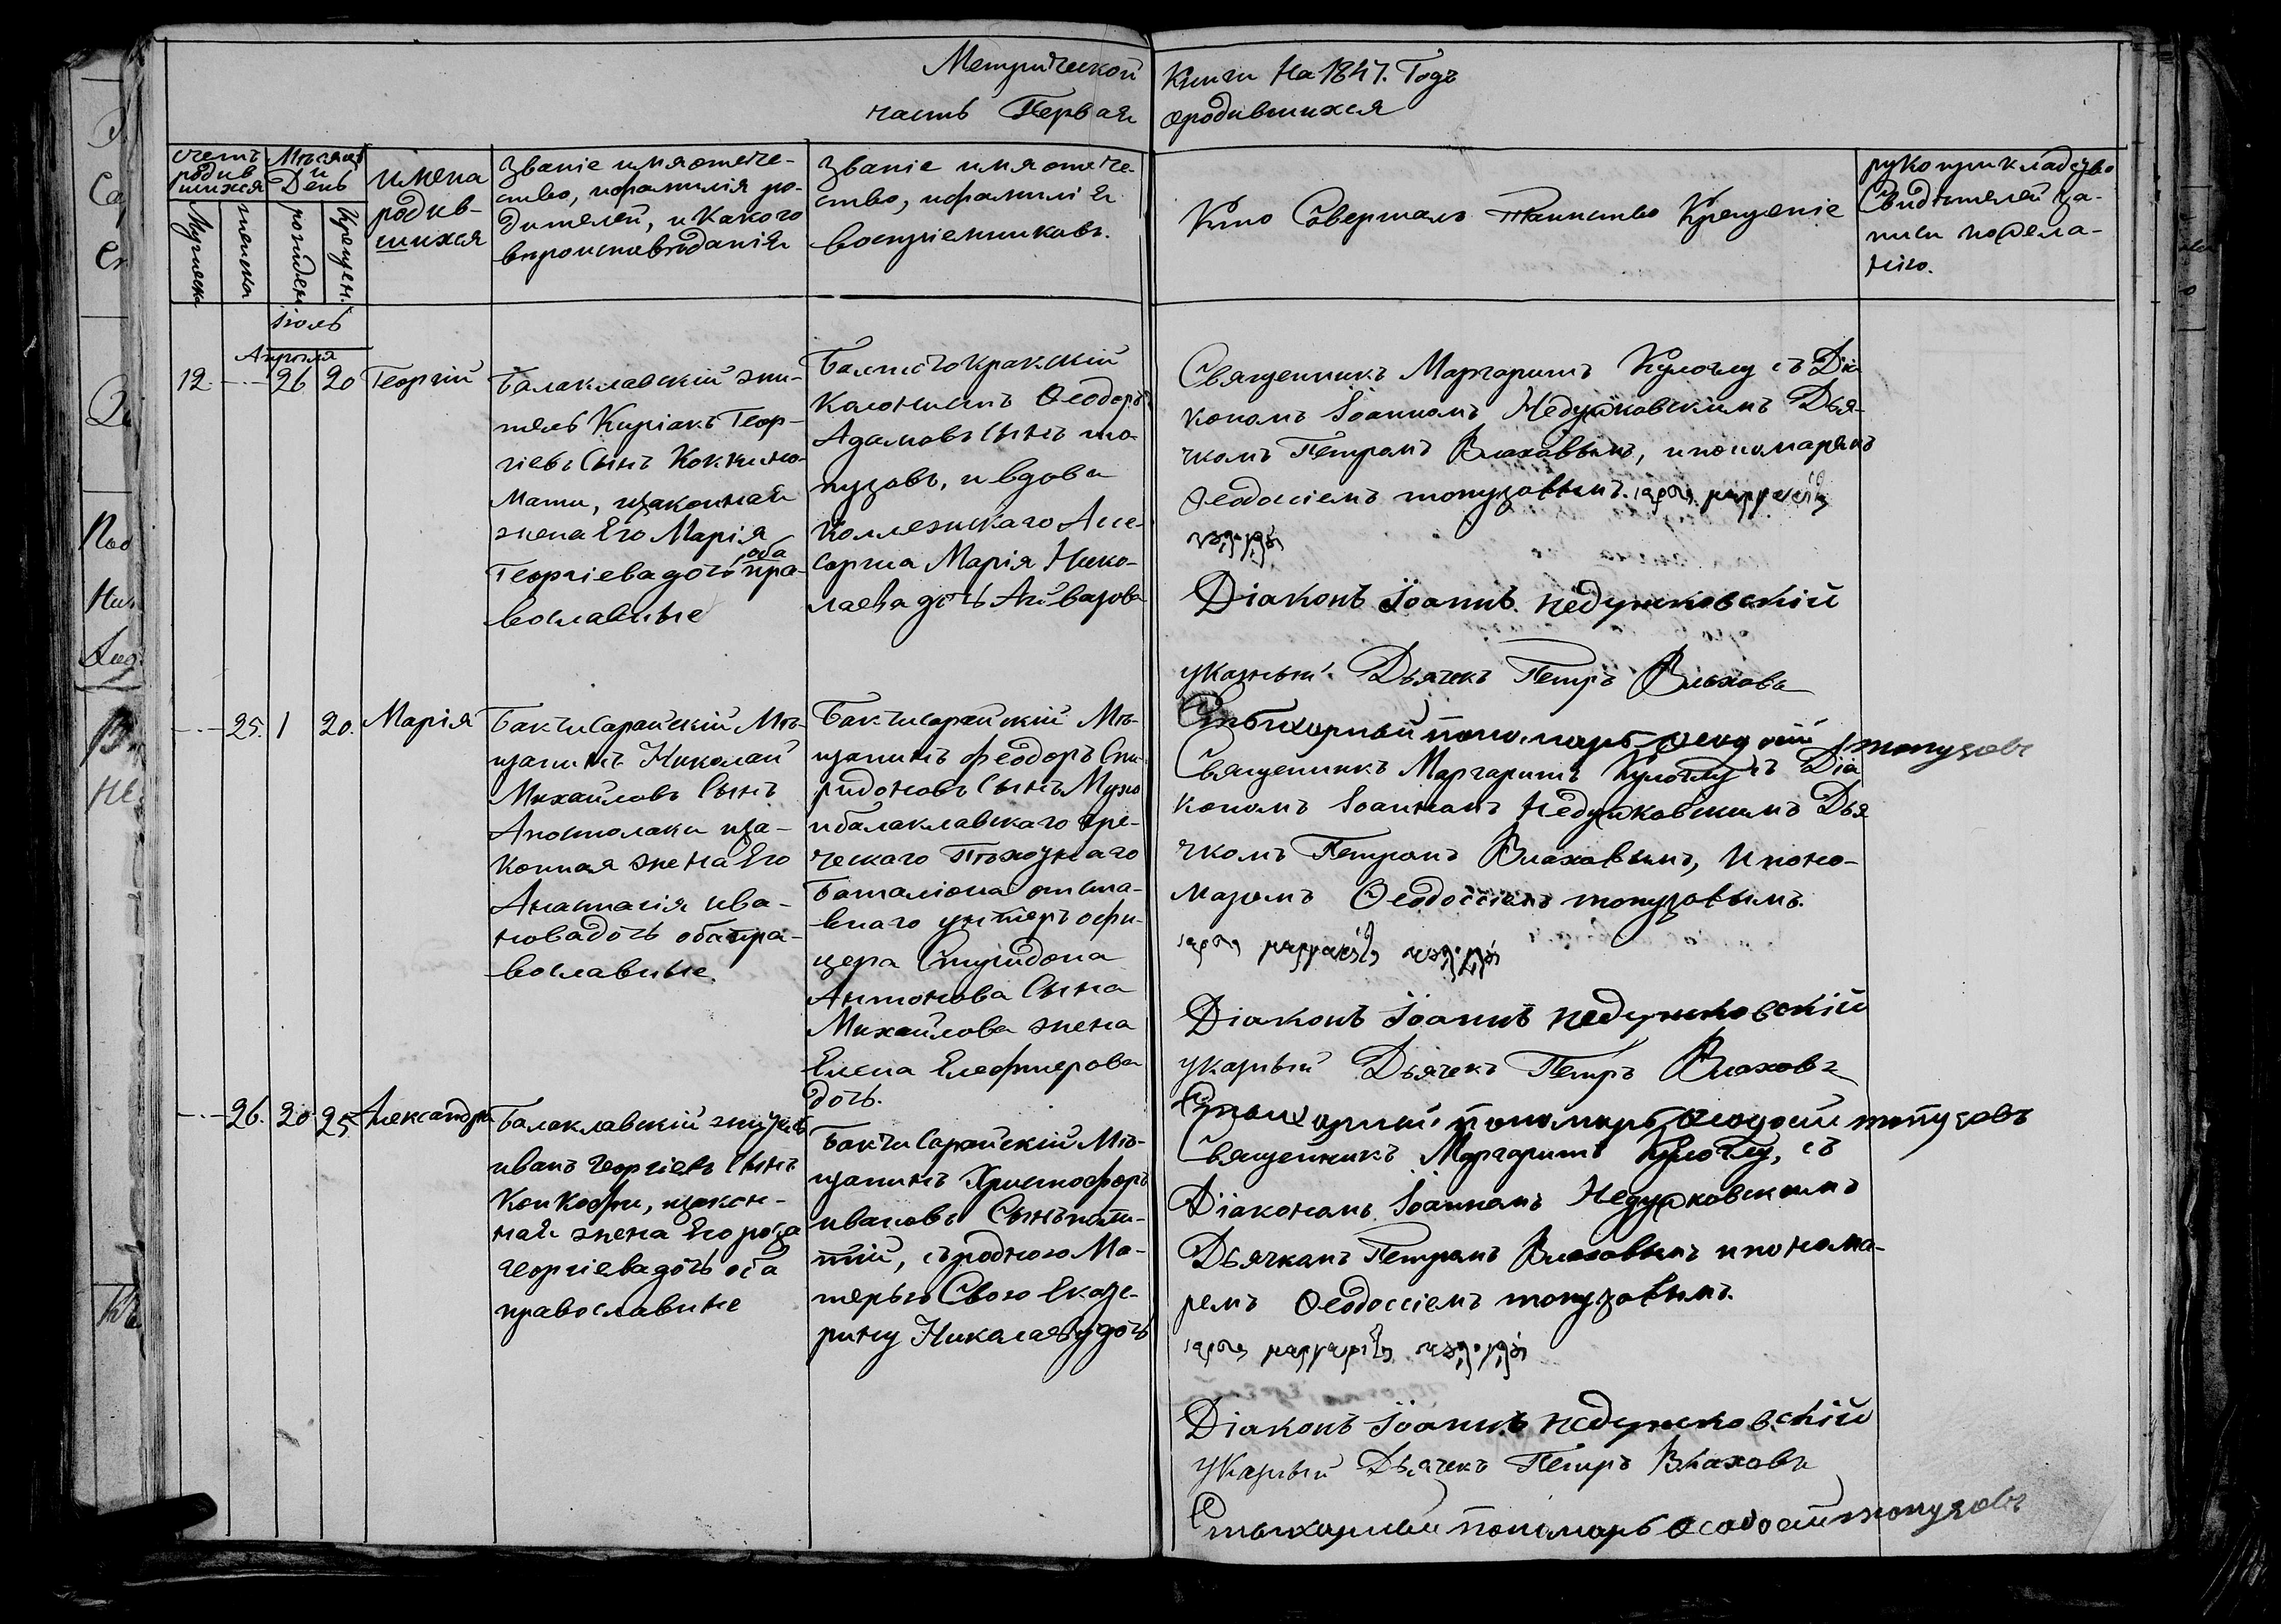 Метрической
часть Первая
Книги На 1847. Годъ
ородившихся
счетъ
родив
шихся
Мѣсяцъ
и
День
Мужеска
женска
рожден
Крещен.
имена
родив-
шихся
Званіе имя отече-
ство, ифамилія ро-
дителей, и Какого
вѣроисповѣданія
Званіе имя отече-
ство, ифамилія
воспріемниковъ.
Кто Совершалъ Таинство Крещеніе
рукоприкладство
Свидѣтелей за-
писи пожела-
нію.
Іюль
Апрѣля
12 26 20 Георгій
Балаклавскій жи-
тель Киріакъ Геор-
гіевъ Сынъ Коккино-
мати, изаконная
жена Его Марія
Георгіева дочь оба пра-
вославные
Колонистъ Ѳеодоръ
Адамовъ Сынъ то-
пузовъ, и вдова
Коллежскаго Ассе-
сорша Марія Нико-
лаева дочь Айвазова
Священникъ Маргаритъ Кулоглу съ Діа-
кономъ Іоанномъ Недужковскимъ Дья-
чкомъ Петромъ Влаховымъ, и пономаремъ
Ѳеодоссіемъ топузовымъ.
Діаконъ Іоаннъ недужковскій
указный Дьячекъ Петръ Влаховъ
Стихарный пономарь Ѳеодосій топузовъ
25. 1 20. Марія
Бакчисарайскій Мѣ-
щанинъ Николай
Михайловъ Сынъ
Апостолаки иза-
конная жена Его
Анастасія ива-
нова дочь оба пра-
вославные.
Бакчисарайскій Мѣ-
щанинъ Феодоръ Спи-
ридоновъ Сынъ
ибалаклавскаго Гре-
ческаго Пѣхотнаго
Баталіона отста-
внаго унтеръ офи-
цера Спиридона
Антонова Сына
Михайлова жена
Елена Елефтерова
дочь.
Священникъ Маргаритъ Кулоглу съ Діа
кономъ Іоанномъ Недужковскимъ Дья
чкомъ Петромъ Влаховымъ, и поно-
маремъ Ѳеодоссіемъ топузовымъ.
Діаконъ Іоаннъ недужковскій
указный Дьячекъ Петръ Влаховъ
Стихарный пономарь Ѳеодосій топузовъ
26. 20 25. Александра
Балаклавскій житель
иванъ Георгіевъ Сынъ
изакон-
ная жена Его роза
Георгіева дочь оба
православные
Бакчисарайскій Мѣ-
щанинъ Христофоръ
ивановъ Сынъ
съродною Ма-
терью Своею Екате-
рину Николаеву дочь
Священникъ Маргаритъ Кулоглу, съ
Діакономъ Іоанномъ Недужковскимъ
Дьячкомъ Петромъ Влаховымъ и понома-
ремъ Ѳеодоссіемъ топузовымъ.
Діаконъ Іоаннъ недужковскій
указный Дьячекъ Петръ Влаховъ
Стихарный пономарь Ѳеодосій топузовъ